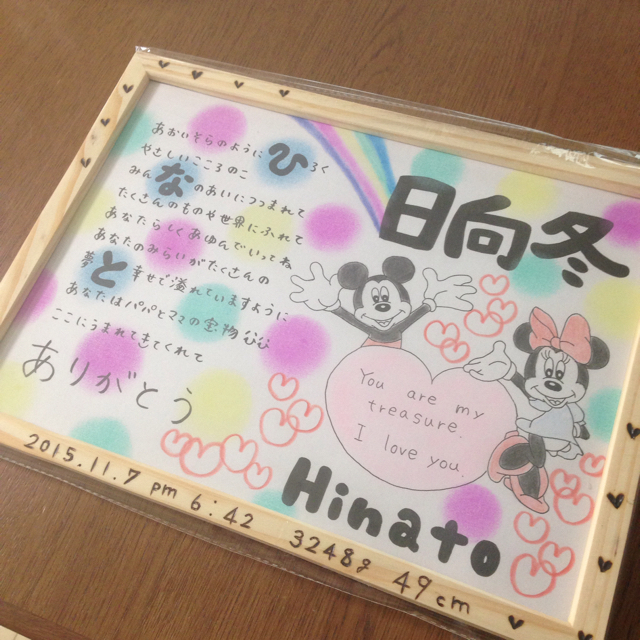 あおいそらのようにひろく
やさしいこころのこ
みんなのあいにつつまれて
たくさんのものや世界にふれて
あなたらしくあゆんでいってね
あなたのみらいがたくさんの
夢と幸せで溢れていますように
あなたはパパとママの宝物
ここにうまれてきてくれて
ありがとう
日向冬
You are my
treasure.
I love you.
Hinato
2015.11.7 pm 6:42 3248g 49cm